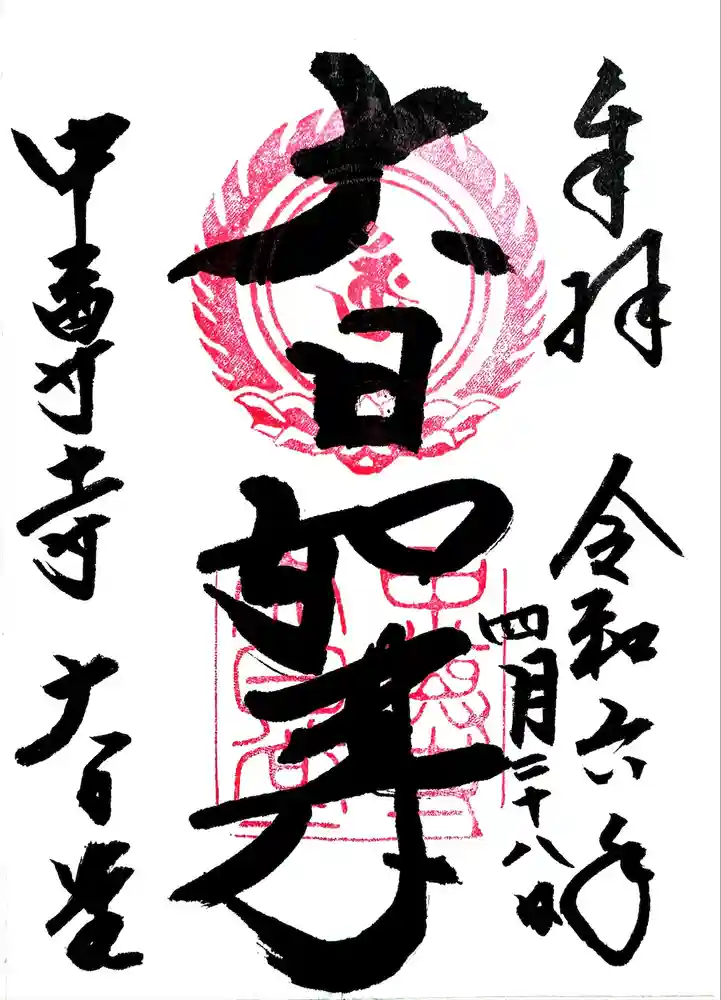 奉拝
令和六年
四月二十八日
大日如来
中尊寺 大日堂